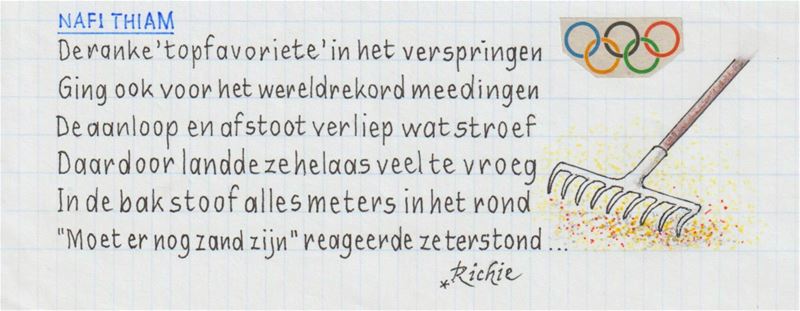 NAFI THIAM
De ranke 'topfavoriete' in het verspringen
Ging ook voor het wereldrekord meedingen
De aanloop en afstoot verliep wat stroef
Daardoor landde ze helaas veel te vroeg
In de bak stoof alles meters in het rond
"Moet er nog zand zijn" reageerde ze terstond...
*Richie